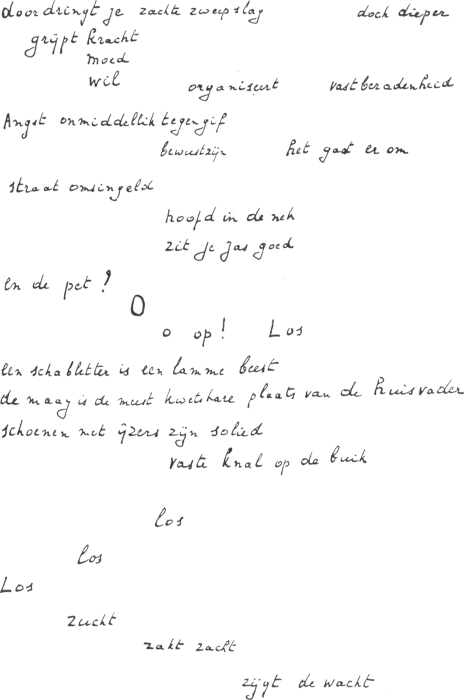 doordringt je zachte zweepslag doch dieper
grijpt kracht
moed
wil organiseert vastberadenheid
Angst onmiddellik tegengif
bewustzijn het gaat er om
straat omsingeld
hoofd in de nek
zit je jas goed
en de pet!
O
o op! Los
een schabletter is een lamme beest
de maag is de meest kwetsbare plaats van de huisvader
schoenen met ijzers zijn solied
vaste knal op de buik
los
los
Los
zucht
zakt zacht
zijgt de wacht